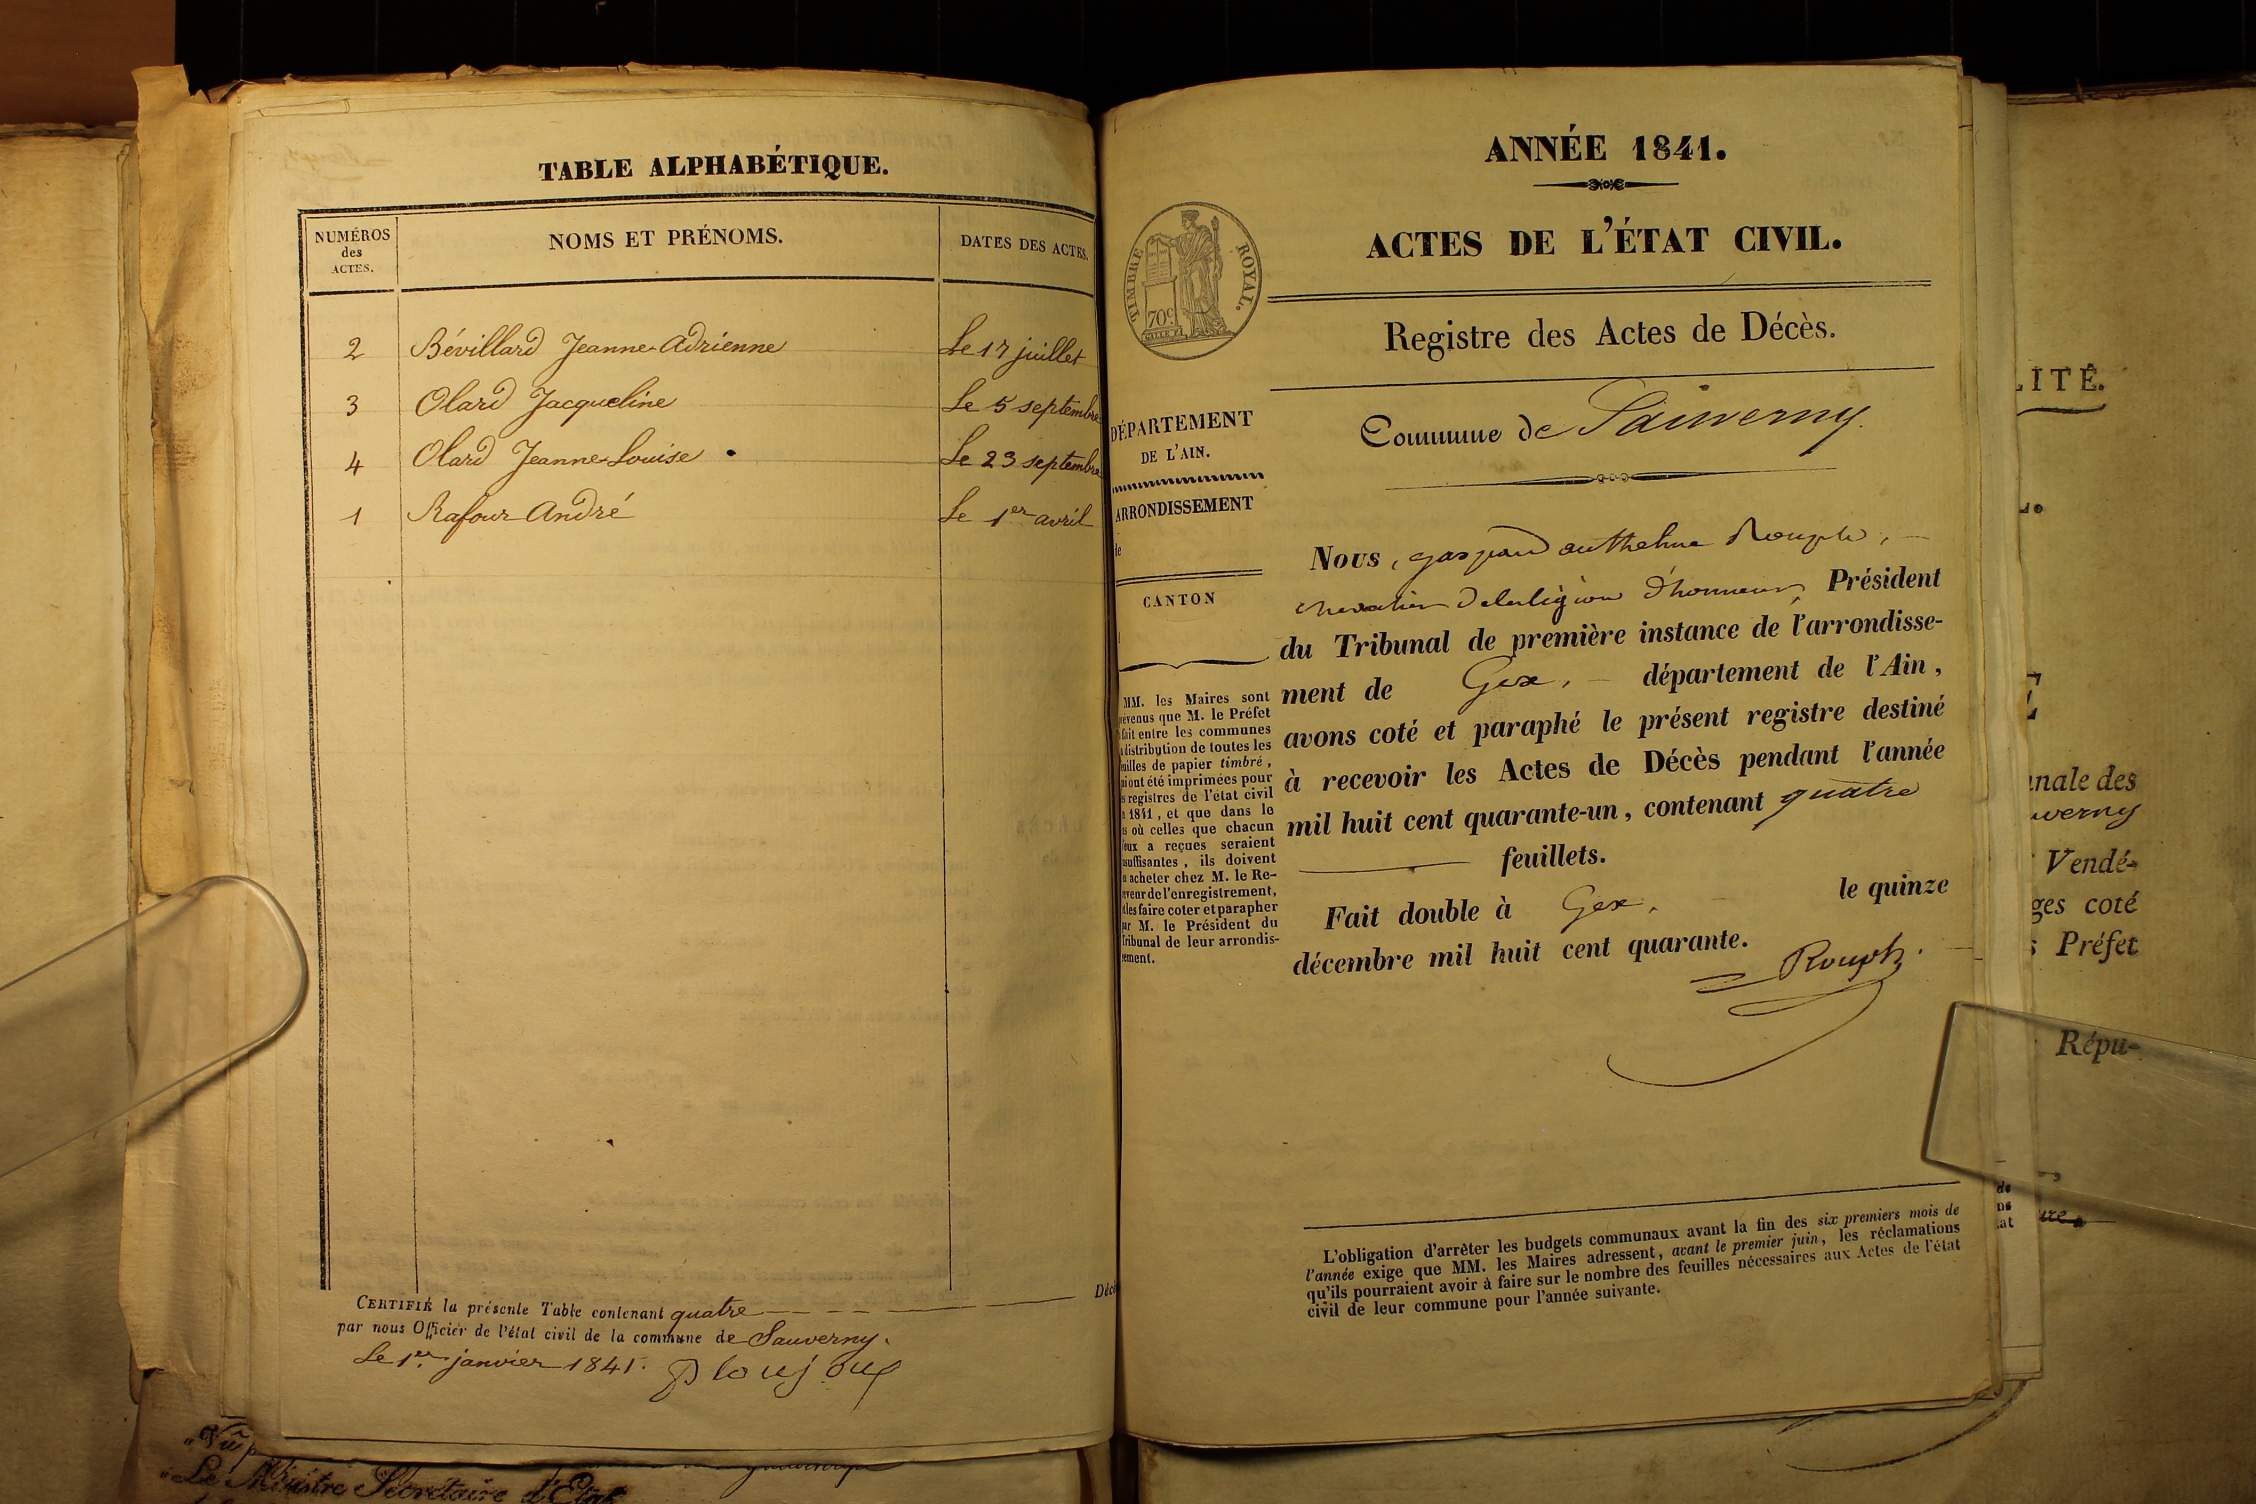 TABLE ALPHABÉTIQUE.
NUMÉROS
des
ACTES.
NOMS ET PRÉNOMS.
DATES DES ACTES.
2 Bévillard Jeanne-Adrienne Le 17 juillet
3 Olard Jacqueline Le 5 septembre
4 Olard Jeanne-Louise Le 23 septembre
1 Rafour André Le 1er avril
CERTIFIÉ la présente Table contenant quatre
par nous Officier de l'état civil de la commune de Sauverny.
Le 1er janvier 1841.
Décè
ANNÉE 1841.
ACTES DE L'ÉTAT CIVIL.
TIMBRE ROYAL.
70c
Registre des Actes de Décès.
Commune de Sauverny.
DÉPARTEMENT
DE L'AIN.
ARRONDISSEMENT
de
CANTON
MM. les Maires sont
évenus que M. le Préfet
fait entre les communes
distribution de toutes les
uilles de papier timbré,
ui ont été imprimées pour
s registres de l'état civil
1841, et que dans le
s où celles que chacun
'eux a reçues seraient
suffisantes, ils doivent
acheter chez M. le Re-
veur de l'enregistrement,
les faire coter et parapher
ar M. le Président du
Tribunal de leur arrondis-
sement.
Nous, gaspard anthelme Rouph,
chevalier de la légion d'honneur, Président
du Tribunal de première instance de l'arrondisse-
ment de Gex, département de l'Ain,
avons coté et paraphé le présent registre destiné
à recevoir les Actes de Décès pendant l'année
mil huit cent quarante-un, contenant quatre
feuillets.
Fait double à Gex, le quinze
décembre mil huit cent quarante.
Rouph.
L'obligation d'arrêter les budgets communaux avant la fin des six premiers mois de
l'année exige que MM. les Maires adressent, avant le premier juin, les réclamations
qu'ils pourraient avoir à faire sur le nombre des feuilles nécessaires aux Actes de l'état
civil de leur commune pour l'année suivante.
LITÉ.
nale des
uverny
Vendé-
ges coté
s Préfet
Répu-
Le Ministre Secrétaire d'Etat